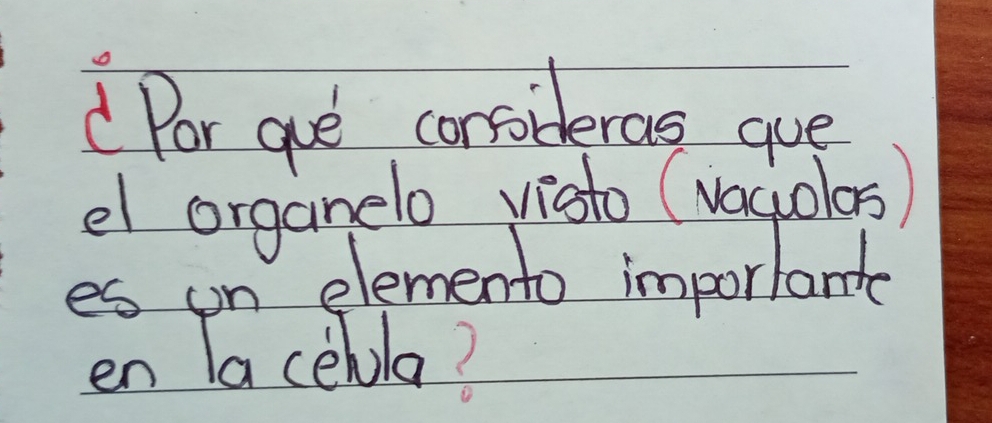 ¿Por qué consideras que
el organelo visto (Vacuolas)
es un elemento importante
en la célula?